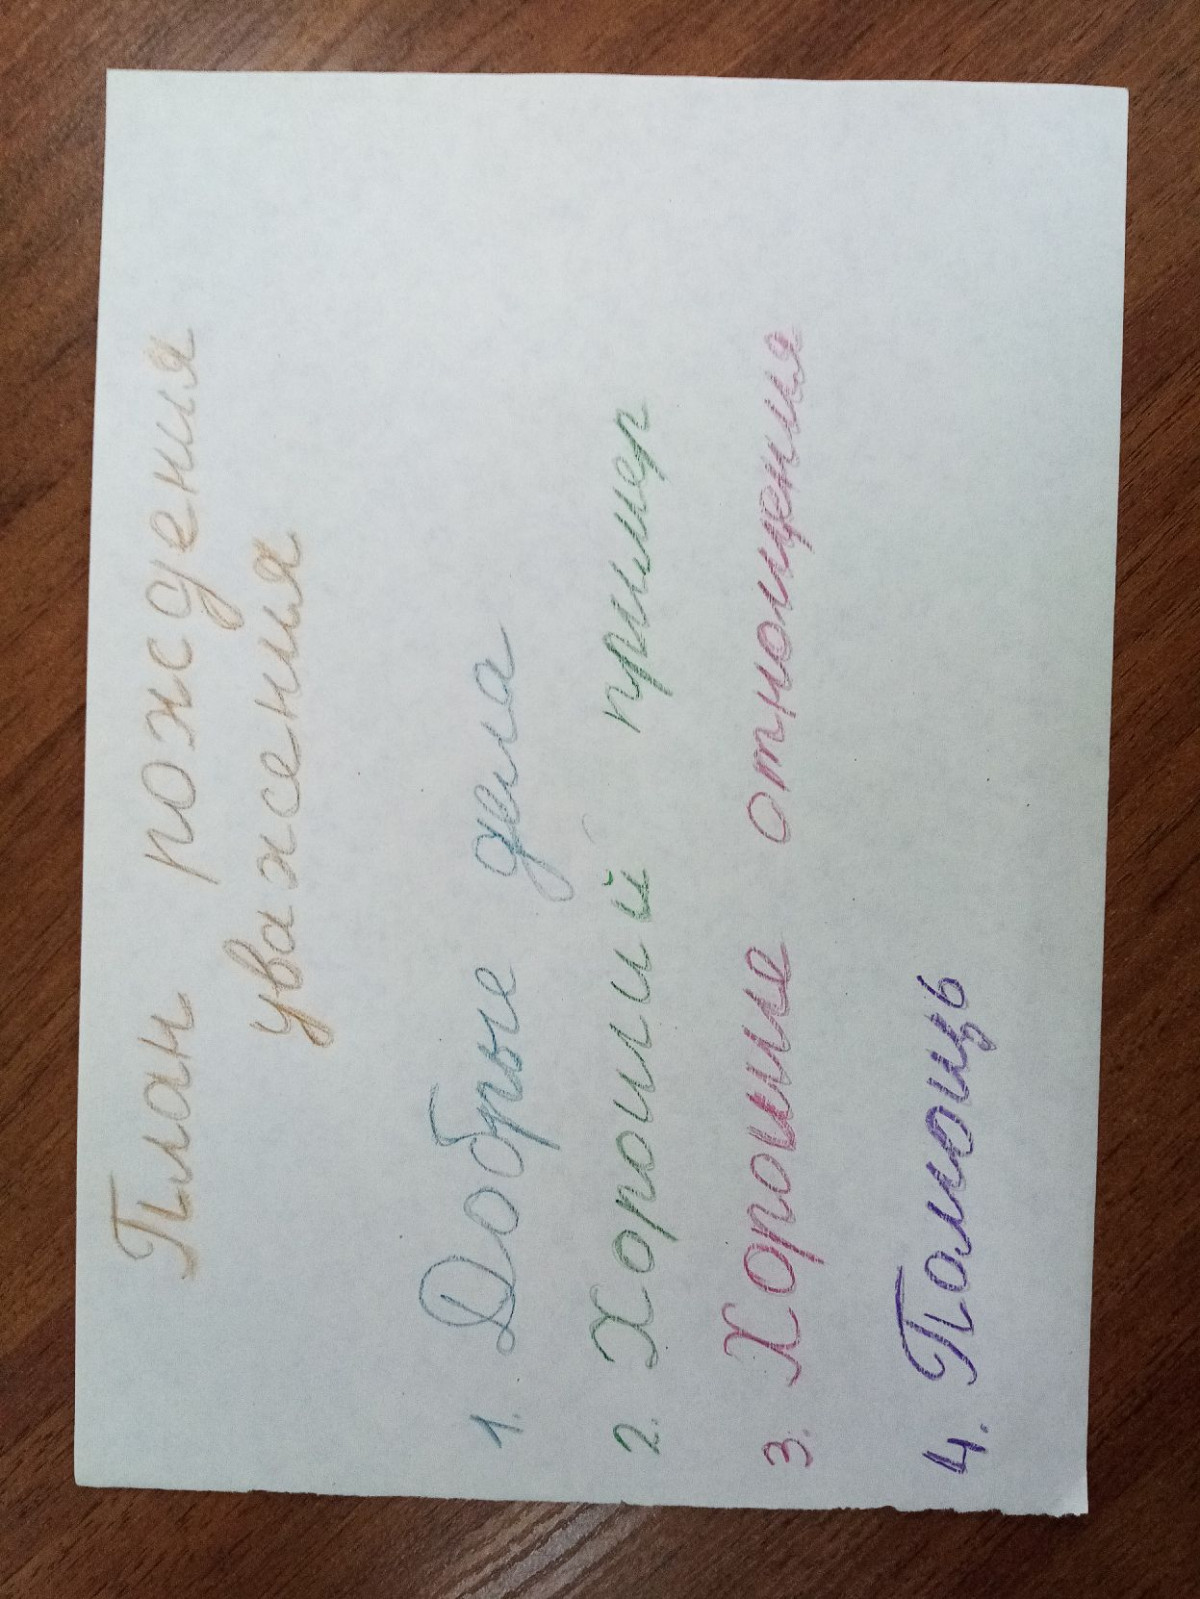 План рождения
уважения
1. Добрые дела
2. Хороший пример
3. Хорошие отнощения
4. Помощь